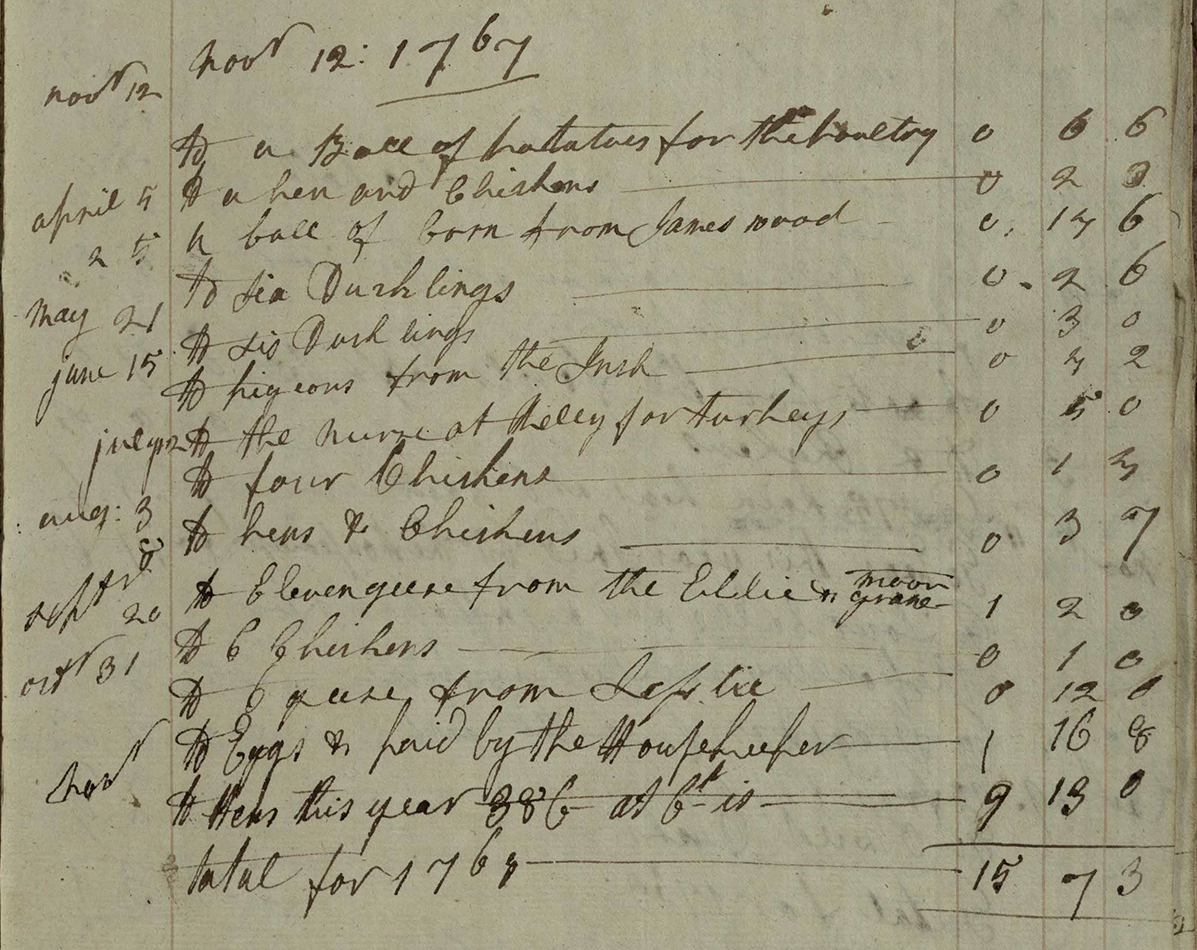 novr 12: 1767
novr 12
to a Boll of potatoes for the poultry 0 6 6
april 5 to a hen and Chickens 0 2
25 a boll of Corn from James wood 0 13 6
to six Ducklings 0 2 6
may 21 to six Ducklings 0 3 0
june 15 to pigeons from the Insh 0 3 2
july 12 to the nurse at Kelly for turkeys 0 5 0
to four Chickens 0 1 3
aug: 3 to hens & Chickens 0 3 7
8
septr 20 to Eleven geese from the Eldie n moor grane 1 2 0
to 6 Chickens 0 1 0
octr 31 to 6 geese from Leslie 0 12 0
to Eggs & paid by the Housekeeper 1 16 8
novr to Hens this year 386 at 6d is 9 13 0
total for 1768 15 7 3